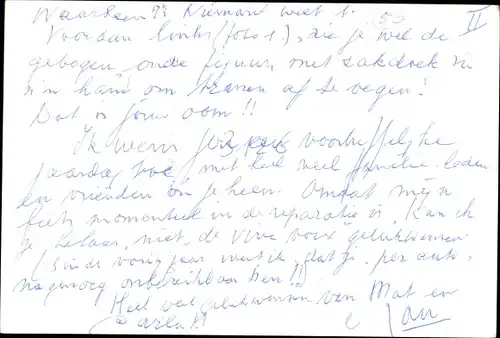 Waarheen?? Niemand weet 't.
Vooraan links (foto 1), zie je wel de II
gebogen oude figuur, met zakdoek in
z'n hand om tranen af te vegen!
Dat is jouw oom!!
Ik wens voortreffelijke
jaardag toe, met heel veel familie-leden
en vrienden om je heen. Omdat mijn
fiets momenteel in de reparatie is, kan ik
je, helaas, niet "de vive voix" gelukwensen.
(Sinds vorig jaar weet ik, dat je, per auto,
nagenoeg onbereikbaar bent!!)
Heel veel gelukwensen van Mat en
Jan